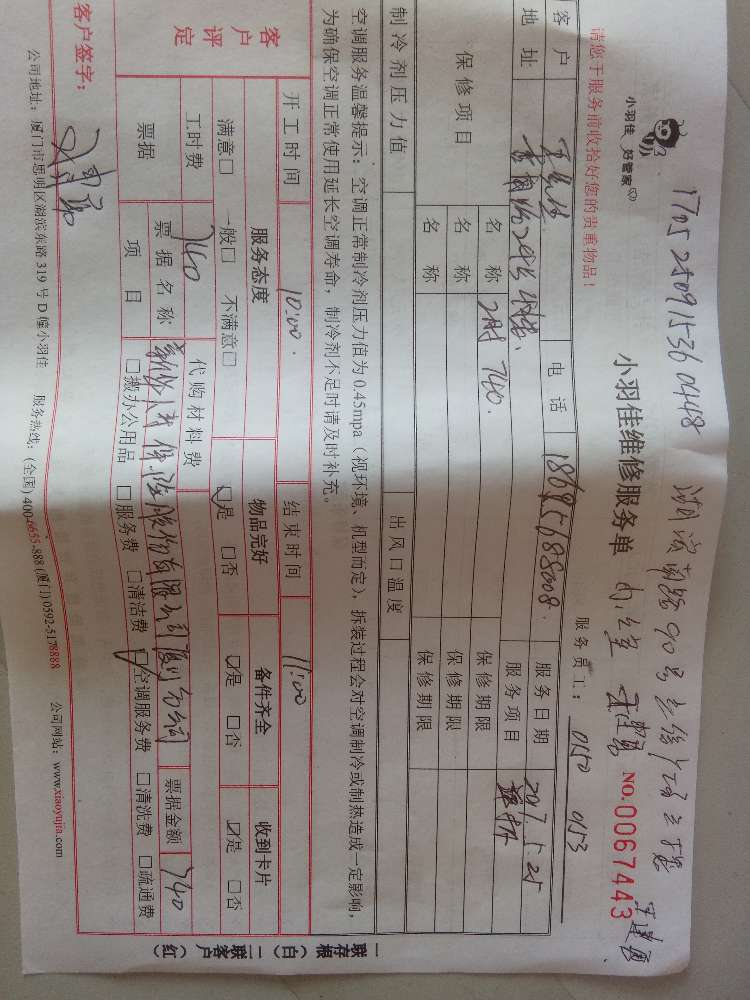 1705250915360448
湖滨南路90号
小羽佳 好管家
小羽佳维修服务单
NO.0067443
请您于服务前收拾好您的贵重物品！
服务员工： 0150 0153
客户 电话 18695688008 服务日期 2017.5.25
地址 服务项目
保修项目 名称 2时 740. 保修期限
名称 保修期限
名称 保修期限
制冷剂压力值 出风口温度
空调服务温馨提示：空调正常制冷剂压力值为0.45mpa（视环境、机型而定），拆装过程会对空调制冷或制热造成一定影响，
为确保空调正常使用延长空调寿命，制冷剂不足时请及时补充。
开工时间 10:00. 结束时间 11:00
客户评定 服务态度 物品完好 备件齐全 收到卡片
满意□ 一般□ 不满意□ ☑是 □否 ☑是 □否 ☑是 □否
工时费 740 代购材料费
票据 票据名称 新华人寿保险股份有限公司厦门分公司 票据金额 740
项目 □搬办公用品 □服务费 □清洁费 ☑空调服务费 □清洗费 □疏通费
客户签字：
公司地址：厦门市思明区湖滨东路319号D幢小羽佳 服务热线：(全国)400-6655-888 (厦门)0592-5178888 公司网站：www.xiaoyujia.com
一联存根（白） 二联客户（红）